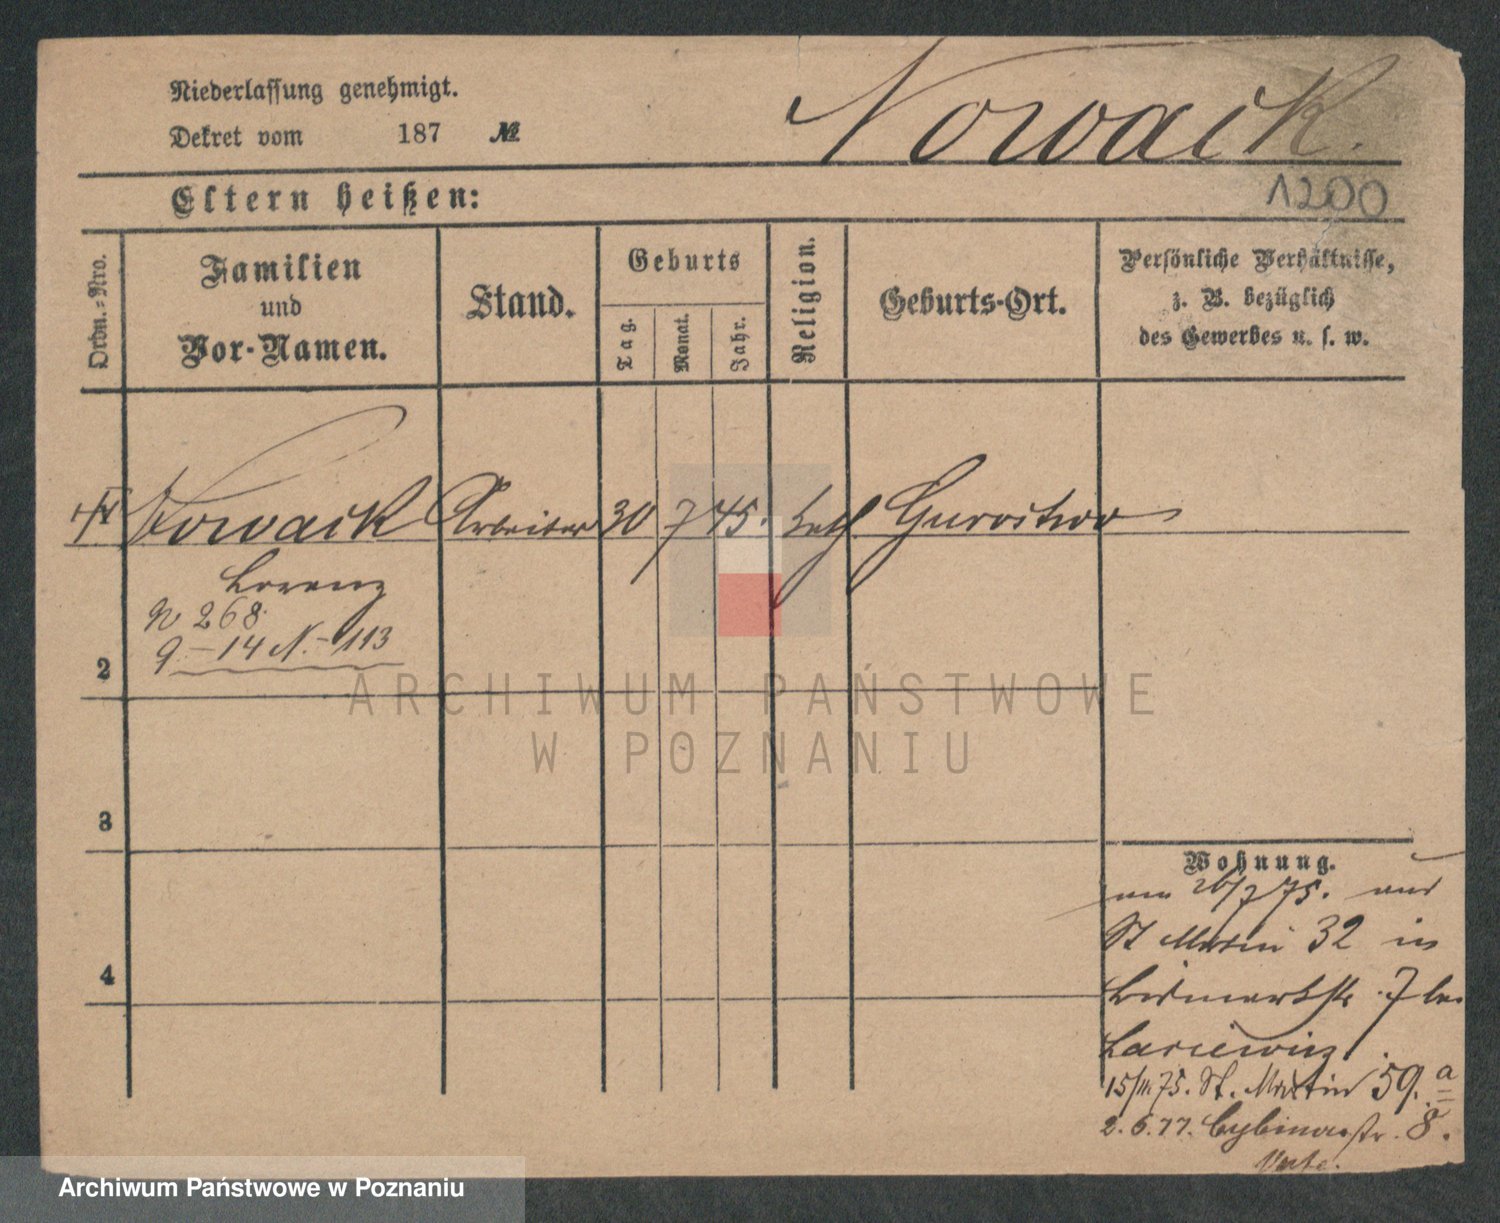 Niederlassung genehmigt.
Dekret vom 187 №
Nowack.
1200
Eltern heißen:
Ordn.-Nro.
Familien
und
Vor-Namen.
Stand.
Geburts
Tag.
Monat.
Jahr.
Religion.
Geburts-Ort.
Persönliche Verhältnisse,
z. B. bezüglich
des Gewerbes u. s. w.
Nowack Arbeiter 30 7 45. kath. Gurostwo
Lorenz
N 268
9 – 14 N. – 113
2
3
4
Wohnung.
am 26/7 75. aus
St Martin 32 in
Bismarckstr. 7 bei
15/III 75. St. Martin 59. a
2. 6. 77. Cybinastr. 8.
Verte.
ARCHIWUM PAŃSTWOWE
W POZNANIU
Archiwum Państwowe w Poznaniu